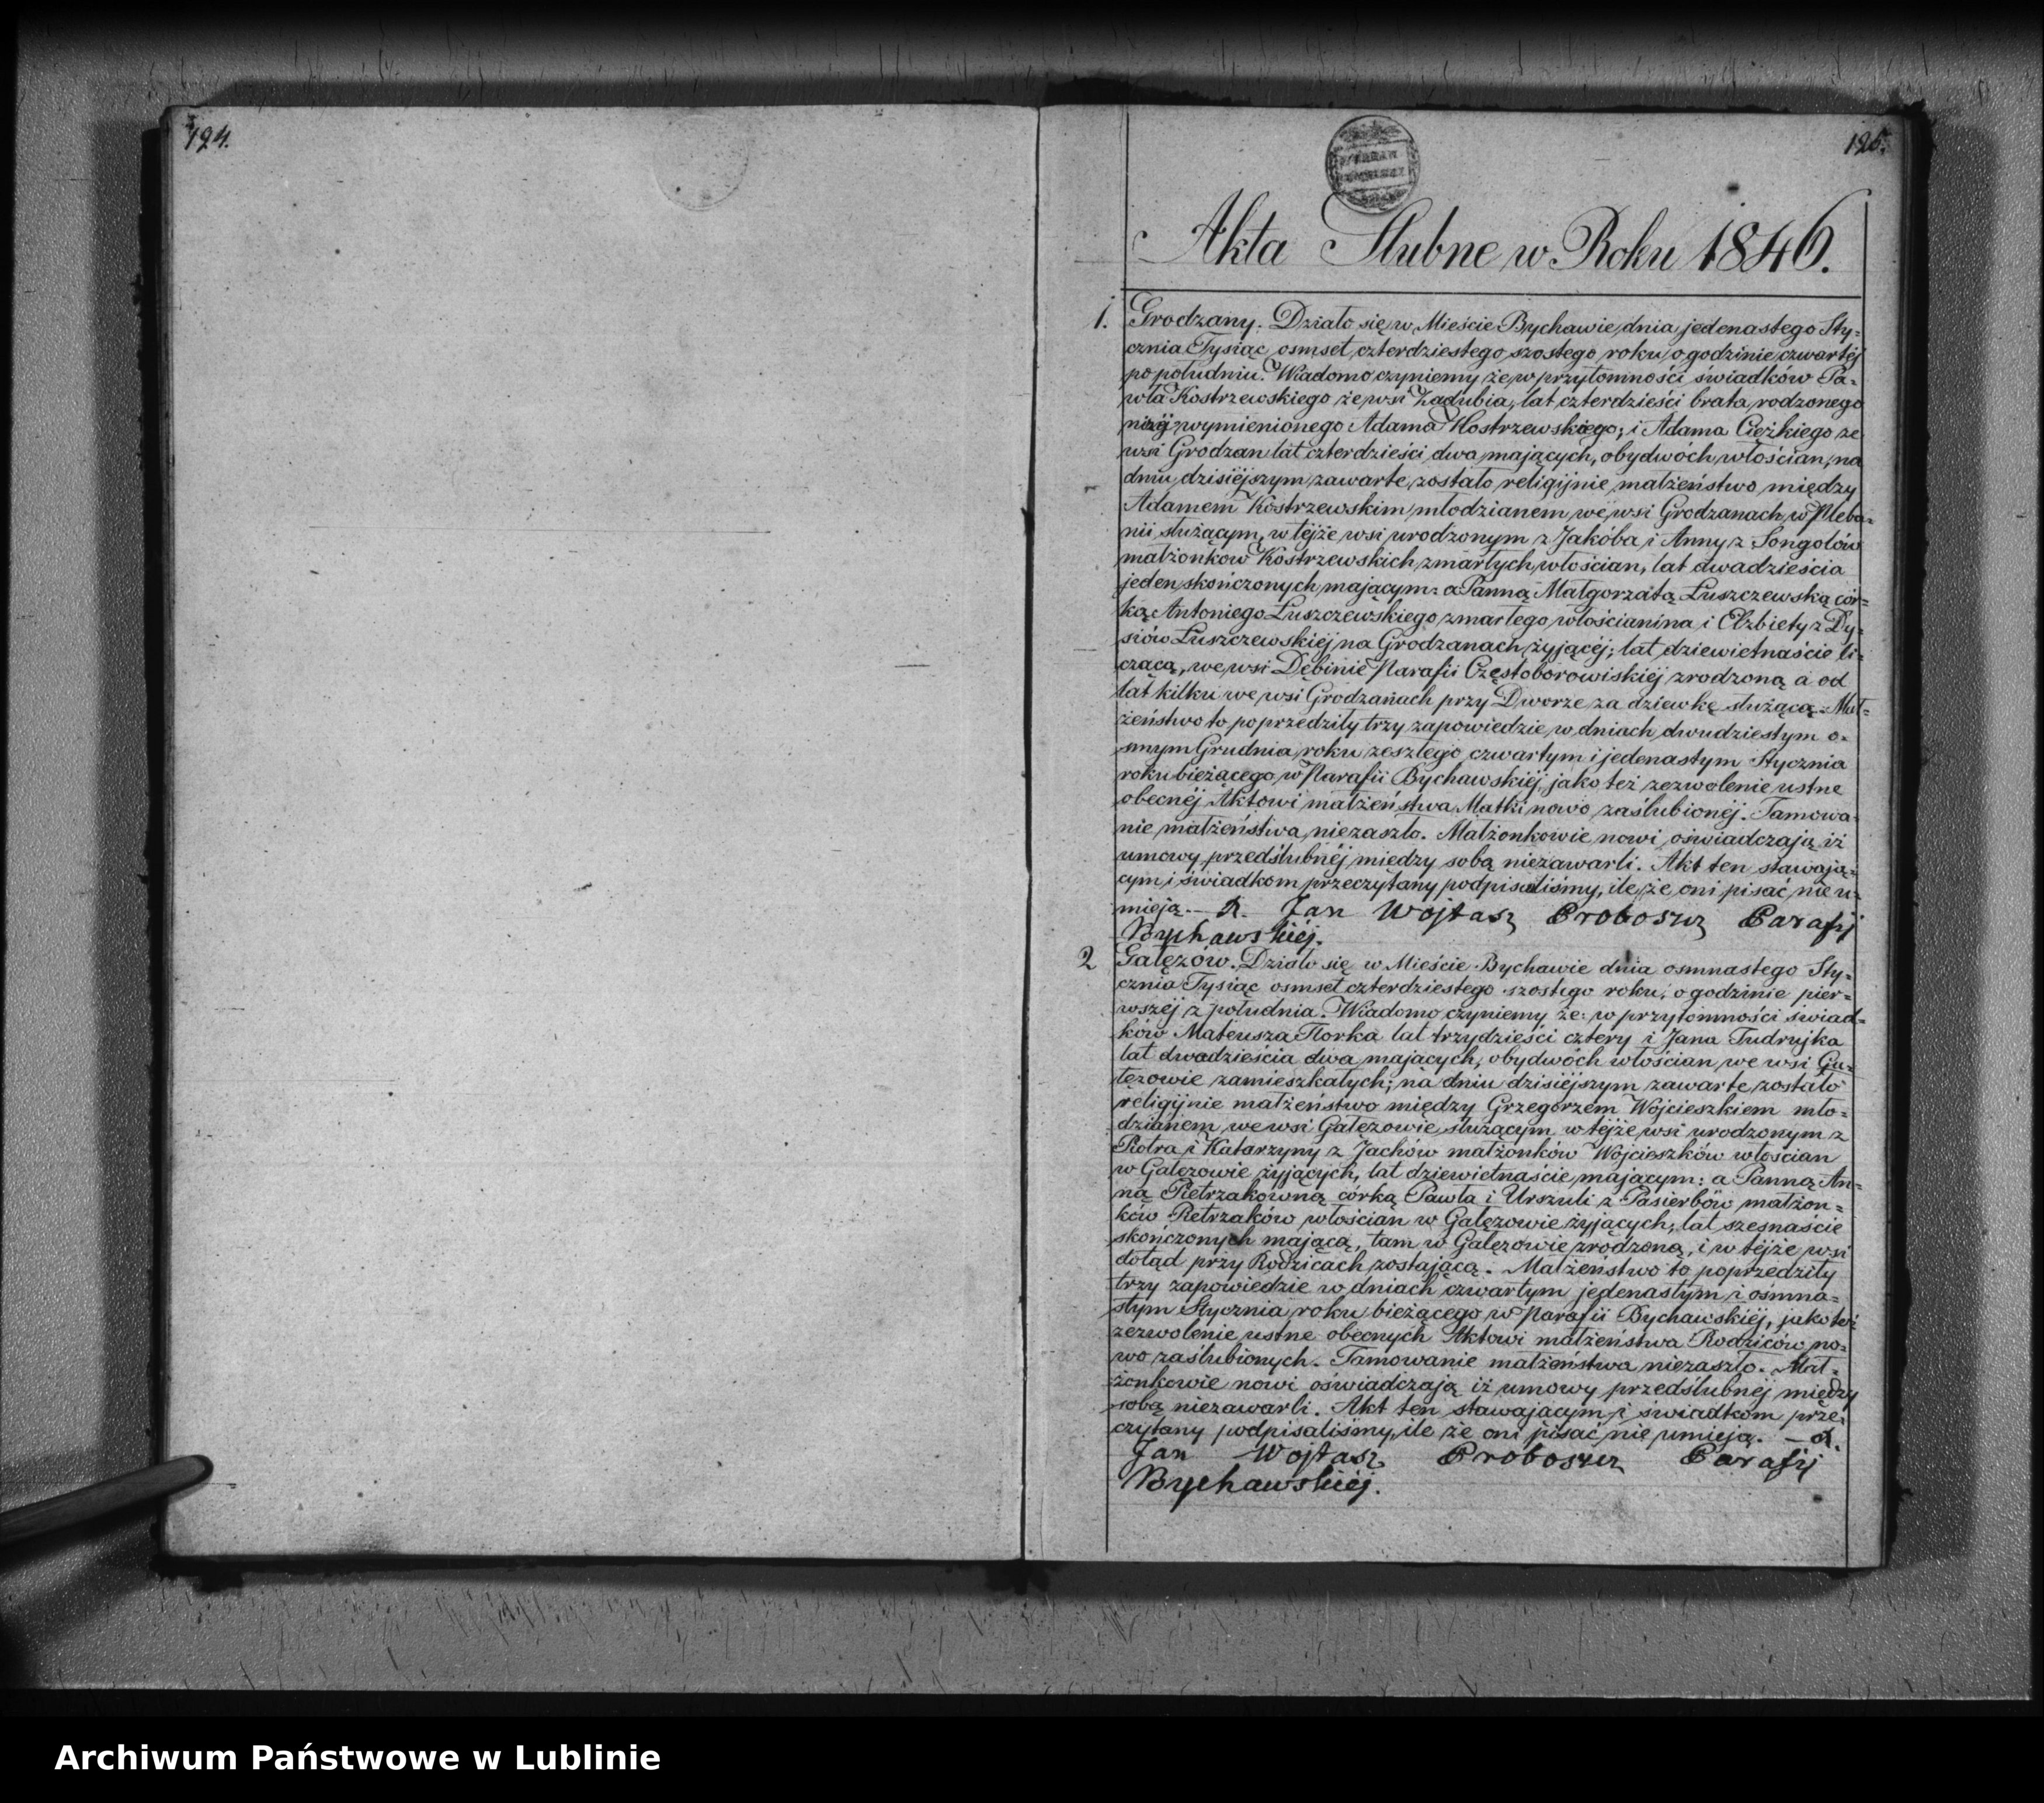 124.
125.
Akta Slubne w Roku 1846.
1. Grodzany. Działo się w Mieście Bychawie dnia jedenastego Sty=
cznia Tysiąc osmset czterdziestego szostego roku, o godzinie czwartéj
po południu. Wiadomo czyniemy że w przytomności świadków Pa=
wła Kostrzewskiego ze wsi Zadubia, lat czterdzieści brata rodzonego
niżéj wymienionego Adama Kostrzewskiego; i Adama Cięzkiego ze
wsi Grodzan lat czterdzieści dwa mających, obydwóch włościan, na
dniu dzisiéjszym zawarte zostało religijnie małżeństwo między
Adamem Kostrzewskim młodzianem we wsi Grodzanach w Pleba=
nii służącym, w téjże wsi urodzonym z Jakóba i Anny z Songołów
małżonkow Kostrzewskich zmarłych włościan, lat dwadzieścia
jeden skończonych mającym: a Panną Małgorzatą Łuszczewską cór=
ką Antoniego Łuszczewskiego zmarłego włościanina i Elżbiety z Dy=
siów Łuszczewskiéj na Grodzanach żyjącéj; lat dziewietnaście li=
czącą, we wsi Dębinie Parafii Częstoborowiskiéj zrodzoną a od
lat kilku we wsi Grodzanach przy Dworze za dziewkę służącą. Mał=
żeństwo to poprzedziły trzy zapowiedzie w dniach dwudziestym o=
smym Grudnia roku zeszłego czwartym i jedenastym Stycznia
roku bieżącego w Parafii Bychawskiéj, jako też zezwolenie ustne
obecnéj Aktowi małżeństwa Matki nowo zaślubionéj. Tamowa=
nie małżeństwa niezaszło. Małżonkowie nowi oświadczają iż
umowy przedślubnéj między sobą niezawarli. Akt ten stawają=
cym i świadkom przeczytany podpisaliśmy, ile że oni pisać nie u=
mieją. — X. Jan Wojtasz Proboszcz Parafij
Bychawskiéj.
2 Gałęzów. Działo się w Mieście Bychawie dnia osmnastego Sty=
cznia Tysiąc osmset czterdziestego szostego roku, o godzinie pier=
wszéj z południa. Wiadomo czyniemy że: w przytomności świad=
ków Mateusza Florka lat trzydzieści cztery i Jana Tudrujka
lat dwadzieścia dwa mających, obydwóch włościan we wsi Ga=
łęzowie zamieszkałych; na dniu dzisiéjszym zawarte zostało
religijnie małżeństwo między Grzegorzem Wójcieszkiem mło=
dzianem we wsi Gałęzowie służącym w téjże wsi urodzonym z
Piotra i Katarzyny z Jachów małżonków Wójcieszków włościan
w Gałęzowie żyjących, lat dziewietnaście mającym: a Panną An=
ną Pietrzakowną córką Pawła i Urszuli z Pasierbów małżon=
ków Pietrzaków włościan w Gałęzowie żyjących, lat szesnaście
skończonych mającą, tam w Gałęzowie zrodzoną, i w téjże wsi
dotąd przy Rodzicach zostającą. Małżeństwo to poprzedziły
trzy zapowiedzie w dniach czwartym jedenastym i osmna=
stym Stycznia roku bieżącego w Parafii Bychawskiéj, jako też
zezwolenie ustne obecnych Aktowi małżeństwa Rodziców no=
wo zaślubionych. Tamowanie małżeństwa niezaszło. Mał=
żonkowie nowi oświadczają iż umowy przedślubnéj między
sobą niezawarli. Akt ten stawającym i świadkom prze=
czytany podpisaliśmy, ile że oni pisać nie umieją. — X.
Jan Wojtasz Proboszcz Parafij
Bychawskiéj.
Archiwum Państwowe w Lublinie